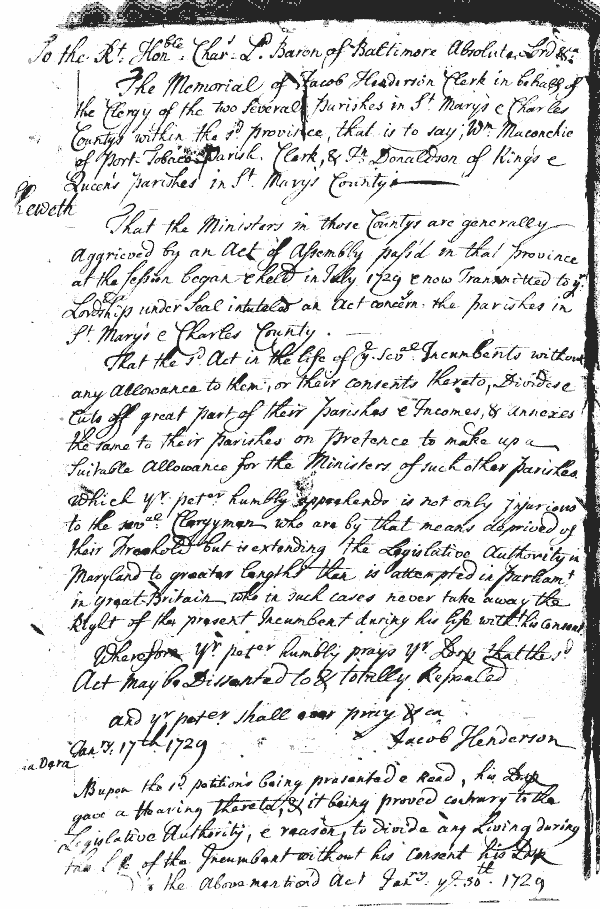 To the Rt. Honble. Chars. Ld. Baron of Baltimore Absolute Lrd &ca.
The Memorial of Jacob Henderson Clerk in behalf of
the Clergy of the two several Parishes in St Mary's & Charles
Countys within the sd province, that is to say, Wm. Maconchie
of Port-Tobacco Parish. Clerk, & Jn. Donaldson of King's &
Queen's Parishes in St. Marys County
Sheweth
That the Ministers in those Countys are generally
Aggrieved by an Act of Assembly pass'd in that Province
at the Session began & held in July 1729 & now Transmitted to yr.
Lordship under Seal intituled an Act concern. the parishes in
St. Mary's & Charles County.
That the sd Act in the life of ye. seval. Incumbents without
any Allowance to them, or their consents thereto, Divides &
Cuts off great part of their Parishes & Incomes, & annexes
the same to their Parishes on Pretence to make up a
Suitable Allowance for the Ministers of such other Parishes
Which yr. peter humbly apprehends is not only Injurious
to the seval Clergymen who are by that means deprived of
their Freehold but is extending the Legislative Authority in
Maryland to greater lengths than is attempted in Parliamt
in great-Britain who in such cases never take away the
Right of the present Incumbent during his life without his Consent
Wherefore yr peter humbly prays yr Ldsp that the sd
Act may be Dissented to & totally Repealed
and yr peter shall ever pray &ca
Jany. 17th 1729 Jacob Henderson
Upon the sd. petitions being presented & Read, his Ldsp
gave a Hearing thereto, & it being proved contrary to the
Legislative Authority, & reason, to divide any Living during
the Life of the Incumbent without his Consent his Ldsp
the Abovementiond Act Jany. ye. 30th. 1729